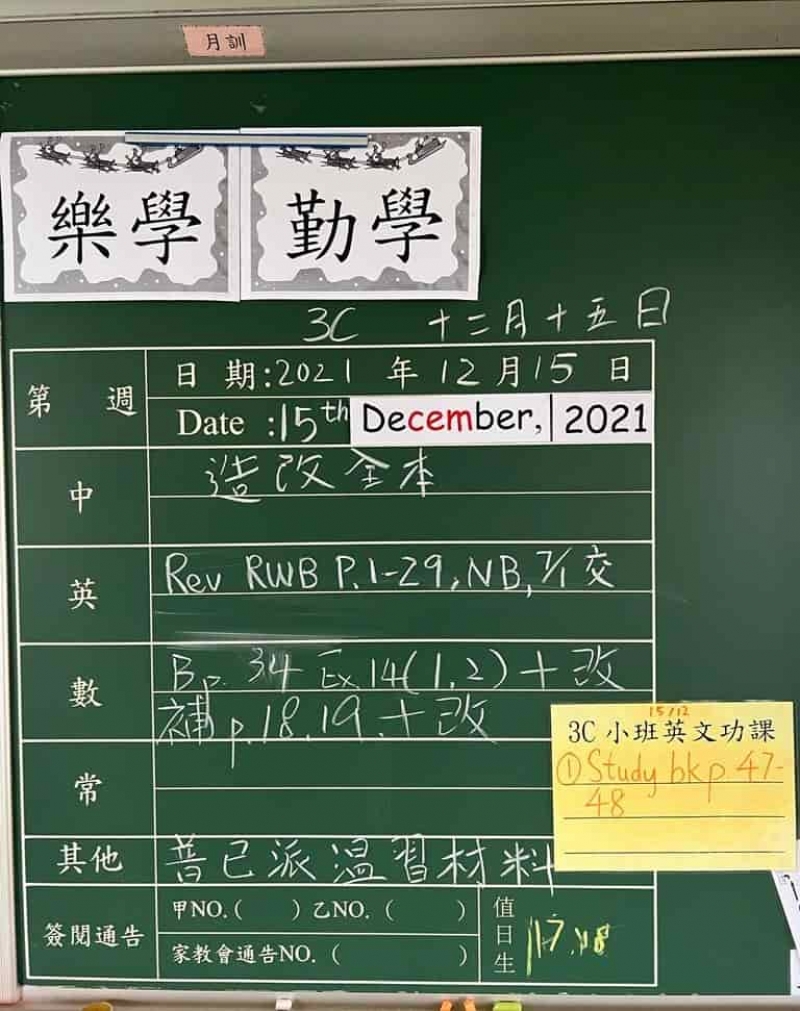 月訓
樂學 勤學
3C 十二月十五日
第 週
日 期:2021 年 12 月 15 日
Date :15th December, 2021
中
造改全本
英
Rev RWB P.1-29, NB, 7/1 交
數
Bp. 34 Ex.14(1,2)+改
補 p.18.19.+改
常
其他
普已派溫習材料
簽閱通告
甲NO.( ) 乙NO. ( )
家教會通告NO. ( )
值日生
17.18
15/12
3C 小班英文功課
① Study bk p 47-
48